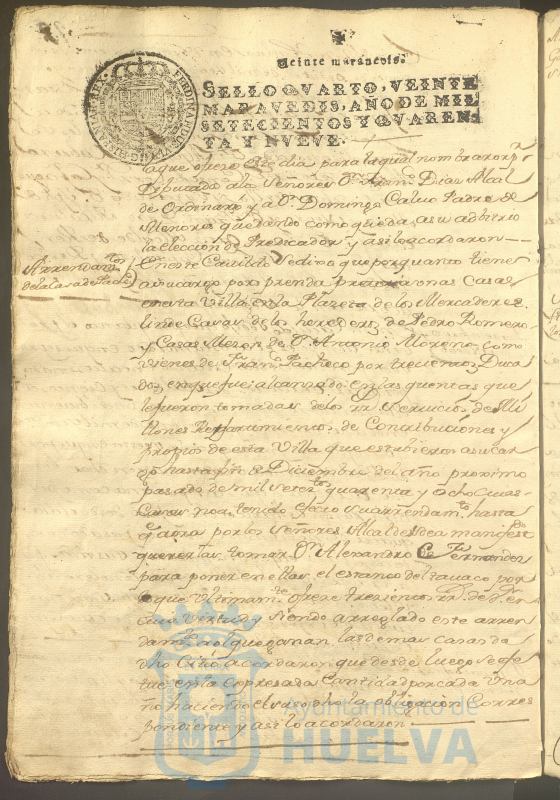 Veinte maravedis.
SELLO QVARTO, VEINTE
MARAVEDIS, AÑO DE MIL
SETECIENTOS Y QVAREN-
TA Y NVEVE.
que ofreze este dia para la qual nombraron p.r
Diputado a los Señores D.n Fran.co Dias Alcal
de Ordinario y a D.n Domingo Calvo Padre de
Menores quedando como queda a su adbitrio
la eleccion de Predicador y asi lo acordaron
Arrendam.to
de la casa de
En este Cavildo se dixo que por quanto tiene
a su cargo por prenda Pretoria unas Casas
en esta Villa en la Plazeta de los Mercaderes
linde Casas de los herederos de Pedro Romero
y Casas Meson de D.n Antonio Moreno, como
vienes de Fran.co Pacheco por trecientos Duca
dos, en que fue alcanzado en las quentas que
le fueron tomadas de los servicios de Mi
llones Repartimientos de Contribuciones y
propios de esta Villa que estubieron a su car
go hasta fin de Diciembre del año proximo
pasado de mil setez.tos quarenta y ocho cuias
Casas no a tenido efecto su arrendam.to hasta
q aora por los Señores Alcaldes se a manifes.do
quererlas tomar D.n Alexandro Fernandez
para poner en ellas el estanco del tavaco por
que ultimam.te ofreze trescientos rr.s de v.n en
cuia virtud y siendo arreglado este arren
dam.to a lo que ganan las demas casas de
dho sitio acordaron que desde luego se efe
tue en la expresada Cantidad por cada un a
ño haciendo el susodho la obligacion Corres
pondiente y asi lo acordaron.
Ayuntamiento de
HUELVA